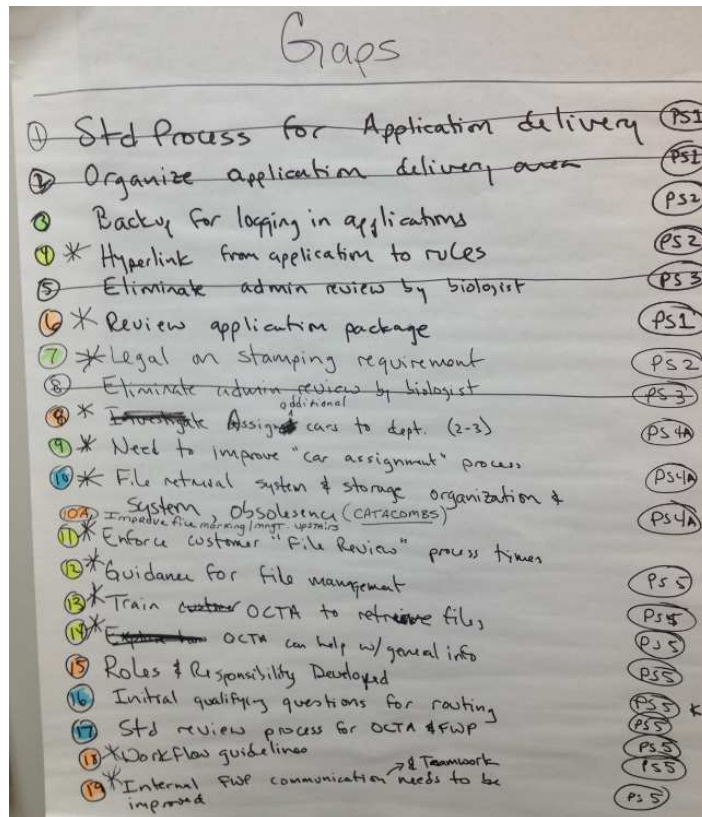 Gaps
1 Std Process for Application delivery PS1
2 Organize application delivery area PS1
3 Backup for logging in applications PS2
4 * Hyperlink from application to rules PS2
5 Eliminate admin review by biologist PS3
6 * Review application package PS1
7 * Legal on stamping requirement PS2
8 Eliminate admin review by biologist PS3
additional
8 * Investigate Assign cars to dept. (2-3) PS4A
9 * Need to improve "car assignment" process
10 * File retrieval system & storage organization & PS4A
System, Obsolesency (CATACOMBS) PS4A
10A Improve file marking/mngt. upstairs
11 * Enforce customer "File Review" process times
12 * Guidance for file management PS5
13 * Train OCTA to retrieve files PS5
14 * OCTA can help w/ general info PS5
15 Roles & Responsibility Developed PS5
16 Initial qualifying questions for routing PS5 *
17 Std review process for OCTA & FWP PS5
18 * Workflow guidelines PS5
& Teamwork PS5
19 * Internal FWP communication needs to be
improved PS5